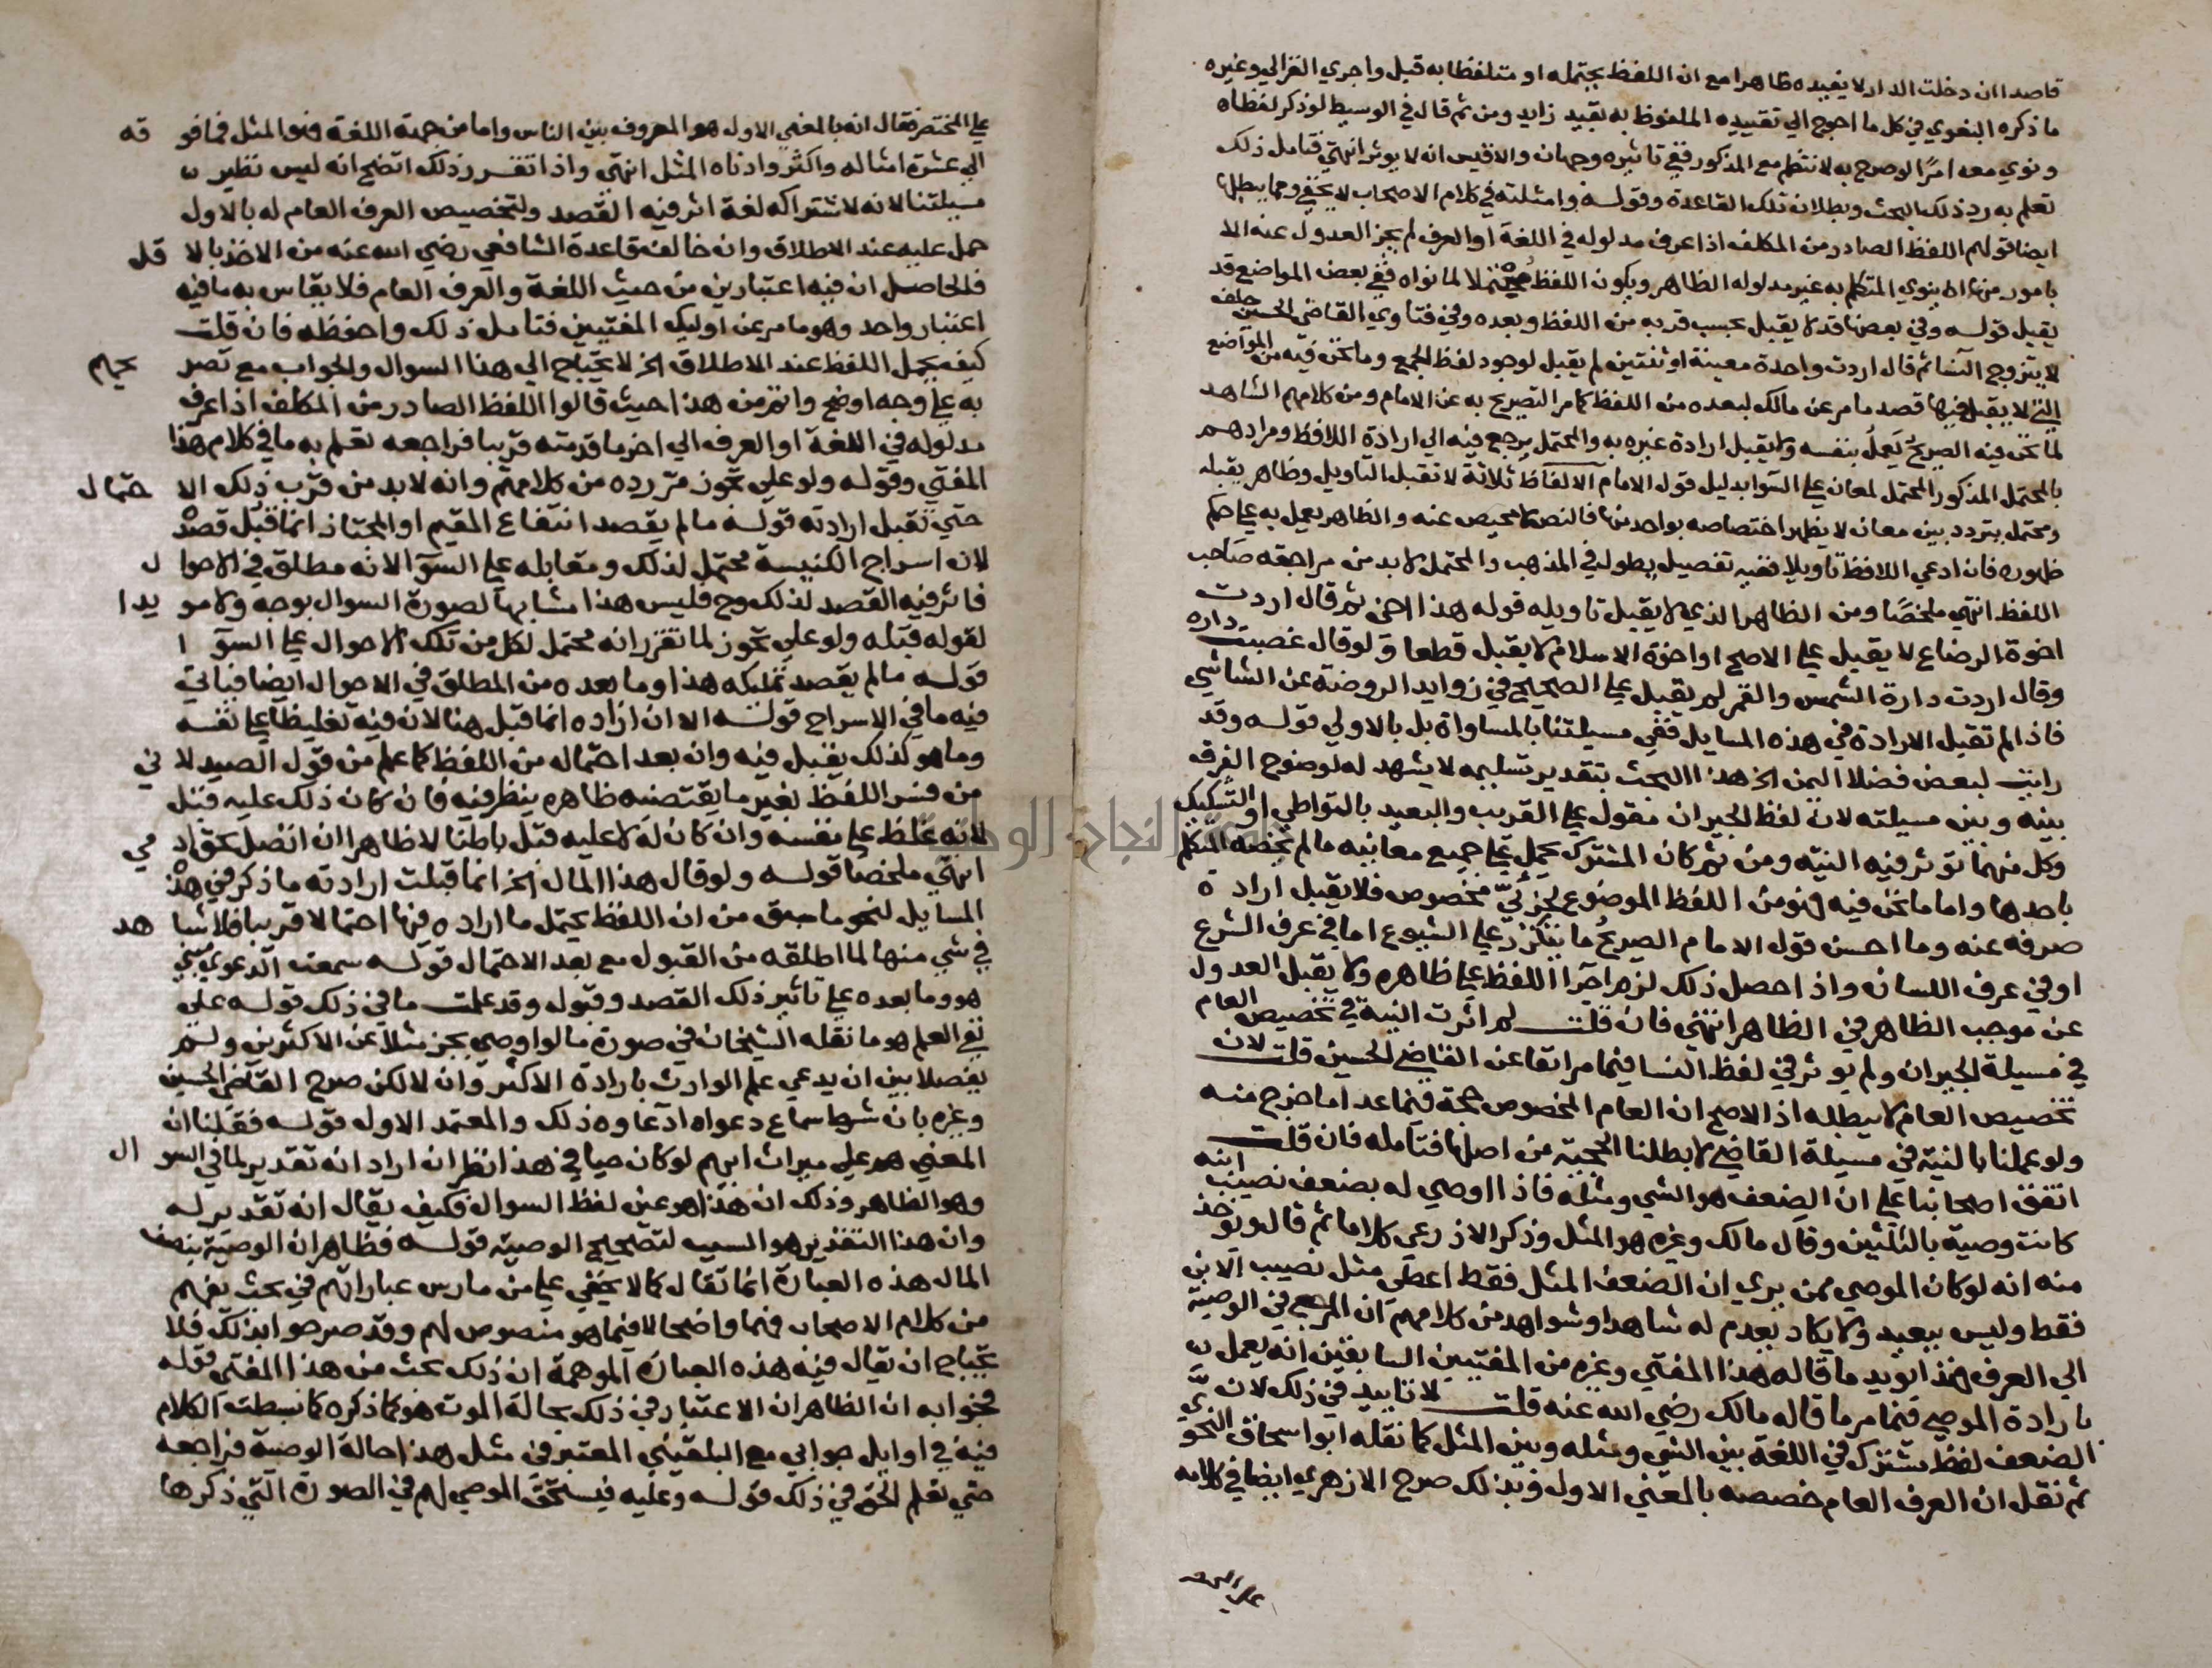 قاصدا ان دخلت الدار لا يفيده ظاهرا مع ان اللفظ يحتمله او متلفظا به قبل واجري الغزالي وغيره
ما ذكره البغوي في كل ما احوج الي تقييده الملفوظ به بقيد زايد ومن ثم قال في الوسيط لو ذكر لفظا
ونوي معه امرًا لو صرح به لانتظم مع المذكور ففي تاثيره وجهان والاقيس انه لا يوثر انتهي فتامل ذلك
تعلم به رد ذلك البحث وبطلانه تلك القاعدة وقوله وامثلته في كلام الاصحاب لا يخفي ومما يبطلها
ايضا قولهم اللفظ الصادر من المكلف اذا عرف مدلوله في اللغة او العرف لم يجز العدول عنه الا
بامور منها ان ينوي المتكلم به غير مدلوله الظاهر ويكون اللفظ محتملا لما نواه ففي بعض المواضع قد
يقبل قوله وفي بعضها قد لا يقبل بحسب قربه من اللفظ وبعده وفي فتاوي القاضي الحسين حلف
لا يتزوج النسا ثم قال اردت واحدة معينة او ثنتين لم يقبل لوجود لفظ الجمع وما نحن فيه من المواضع
التي لا يقبل فيها قصد ما مر عن مالك لبعده من اللفظ كما مر التصريح به عن الامام ومن كلامهم الشاهد
لما نحن فيه الصريح يَعملُ بنفسه ولا يقبل ارادة غيره به والمحتمل يرجع فيه الي ارادة اللافظ ومرادهم
بالمحتمل المذكور المحتمل لمعان علي السوا بدليل قول الامام الالفاظ ثلاثة لا تقبل التاويل وظاهر يقبله
ومحتمل يتردد بين معان لا يظهر اختصاصه بواحد منها فالنص لا محيص عنه والظاهر يعمل به علي حكم
ظهوره فان ادعي اللافظ تاويلا ففيه تفصيل يطول في المذهب والمحتمل لا بد من مراجعة صاحب
اللفظ انتهي ملخصًا ومن الظاهر الذي لا يقبل تاويله قوله هذا اخي ثم قال اردت
اخوة الرضاع لا يقبل علي الاصح او اخوة الاسلام لا يقبل قطعا ولو قال غصبت داره
وقال اردت دارة الشمس والقمر لم يقبل علي الصحيح في زوايد الروضة عن الشاشي
فاذا لم تقبل الارادة في هذه المسايل ففي مسيلتنا بالمساواة بل بالاولي قوله وقد
رايت لبعض فضلا اليمن الخ هذا البحث بتقدير تسليمه لا يشهد له لوضوح الفرق
بينه وبين مسيلته لان لفظ الجيران مقول علي القريب والبعيد بالتواطي او التشكيك
وكل منهما توثر فيه النية ومن ثم كان المشترك يحمل علي جميع معانيه ما لم يخصه المتكلم
باحدها واما ما نحن فيه فهو من اللفظ الموضوع لجزئيّ مخصوص فلا يقبل ارادة
صرفه عنه وما احسن قول الامام الصريحُ ما يتكرّر علي الشيوع اما في عرف الشرع
او في عرف اللسان واذا حصل ذلك لزم اجرا اللفظ علي ظاهره ولا يقبل العدول
عن موجب الظاهر في الظاهر انتهي فان قلت لم اثرت النية في تخصيص العام
في مسيلة الجيران ولم توثر في لفظ النسا فيما مر انفا عن القاضي الحسين قلت لان
تخصيص العام لا يبطله اذ الاصح ان العام المخصوص حجة فيما عدا ما خرج منه
ولو عملنا بالنية في مسيلة القاضي لابطلنا الجمعية من اصلها فتامله فان قلت
اتفق اصحابنا علي ان الضعف هو الشي ومثله فاذا اوصي له بضعف نصيب ابنه
كانت وصية بالثلثين وقال مالك وغيره هو المثل وذكر الاذرعي كلاما ثم قال ويوخذ
منه انه لو كان الموصي ممن يري ان الضعف المثل فقط اعطي مثل نصيب الابن
فقط وليس ببعيد ولا يكاد يعدم له شاهد او شواهد من كلامهم ان المرجع في الوصية
الي العرف فهذا يويد ما قاله هذا المفتي وغيره من المفتيين السابقين انه يعمل
بارادة الموصي فيما مر ما قاله مالك رضي الله عنه قلت لا تاييد في ذلك لان
الضعف لفظ مشترك في اللغة بين الشي ومثله وبين المثل كما نقله ابو اسحاق النحوي
ثم نقل ان العرف العام خصصه بالمعني الاول وبذلك صرح الازهري ايضا في كلامه
علي المختصر
علي المختصر فقال انه بالمعني الاول هو المعروف بين الناس واما من جهة اللغة فهو المثل فما فوقه
الي عشرة امثاله واكثر وادناه المثل انتهي واذا تقرر ذلك اتضح انه ليس نظير
مسيلتنا لانه لاشتراكه لغة اثر فيه القصد ولتخصيص العرف العام له بالاول
حمل عليه عند الاطلاق وان خالف قاعدة الشافعي رضي الله عنه من الاخذ بالاقل
فالحاصل ان فيه اعتبارين من حيث اللغة والعرف العام فلا يقاس به ما فيه
اعتبار واحد وهو ما مر عن اوليك المفتيين فتامل ذلك واحفظه فان قلت
كيف يحمل اللفظ عند الاطلاق الخ لا يحتاج الي هذا السوال والجواب مع تصريحهم
به علي وجه اوضح واتم من هذا حيث قالوا اللفظ الصادر من المكلف اذا عرف
مدلوله في اللغة او العرف الي اخر ما قدمته قريبا فراجعه تعلم به ما في كلام هذا
المفتي وقوله ولو علي تجوز مر رده من كلامهم وانه لا بد من قرب ذلك الاحتمال
حتي تقبل ارادته قوله ما لم يقصد انتفاع المقيم او المجتاز انما قبل قصده
لان اسراج الكنيسة محتمل لذلك ومقابله علي السوآ لانه مطلق في الاحوال
فاثر فيه القصد لذلك وح فليس هذا مشابها لصورة السوال بوجه ولا مويدا
لقوله قبله ولو علي تجوز لما تقرر انه محتمل لكل من تلك الاحوال علي السوآ
قوله ما لم يقصد تمليكه هذا وما بعده من المطلق في الاحوال ايضا فياتي
فيه ما في الاسراج قوله الا ان اراده انما قبل هنا لان فيه تغليظا علي نفسه
وما هو كذلك يقبل فيه وان بعد احتماله من اللفظ كما علم من قول الصيدلاني
من فسر اللفظ بغير ما يقتضيه ظاهره ينظر فيه فان كان ذلك عليه قبل
لانه غلظ علي نفسه وان كان له لا عليه قبل باطنا لا ظاهرا ان اتصل بحق ادمي
انتهي ملخصا قوله ولو قال هذا المال الخ انما قبلت ارادته ما ذكر في هذه
المسايل لنحو ما سبق من ان اللفظ يحتمل ما اراده فيها احتمالا قريبا فلا شاهد
في شي منها لما اطلقه من القبول مع بعد الاحتمال قوله سمعت الدعوي مبني
هو وما بعده علي تاثير ذلك القصد وقبوله وقد علمت ما في ذلك قوله علي
نفي العلم هو ما نقله الشيخان في صورة ما لو اوصي بجز مثلا عن الاكثرين ولم
يفصلا بين ان يدعي علم الوارث بارادة الاكثر وان لا لكن صرح القاضي الحسين
وغيره بان شرط سماع دعواه ادعاوه ذلك والمعتمد الاول قوله فقلنا ان
المعني هو علي ميراث ابيهم لو كان حيا في هذا نظر ان اراد انه تقدير لما في السوال
وهو الظاهر وذلك ان هذا هو عين لفظ السوال فكيف يقال انه تقدير له
وان هذا التقدير هو السبب لتصحيح الوصية قوله فظاهر ان الوصية بنصف
المال هذه العبارة انما تقال كما لا يخفي علي من مارس عباراتهم في بحث يفهم
من كلام الاصحاب فهما واضحا لا فيما هو منصوص لهم وقد صرحوا بذلك فلا
يحتاج ان يقال فيه هذه العبارة الموهمة ان ذلك بحث من هذا المفتي قوله
فجوابه ان الظاهر ان الاعتبار في ذلك بحالة الموت هو كما ذكره كما بسطت الكلام
فيه في اوايل جوابي مع البلقيني المعتبر في مثل هذا حالة الوصية فراجعه
حتي تعلم الحق في ذلك قوله وعليه فيستحق الموصي لهم في الصورة التي ذكرها